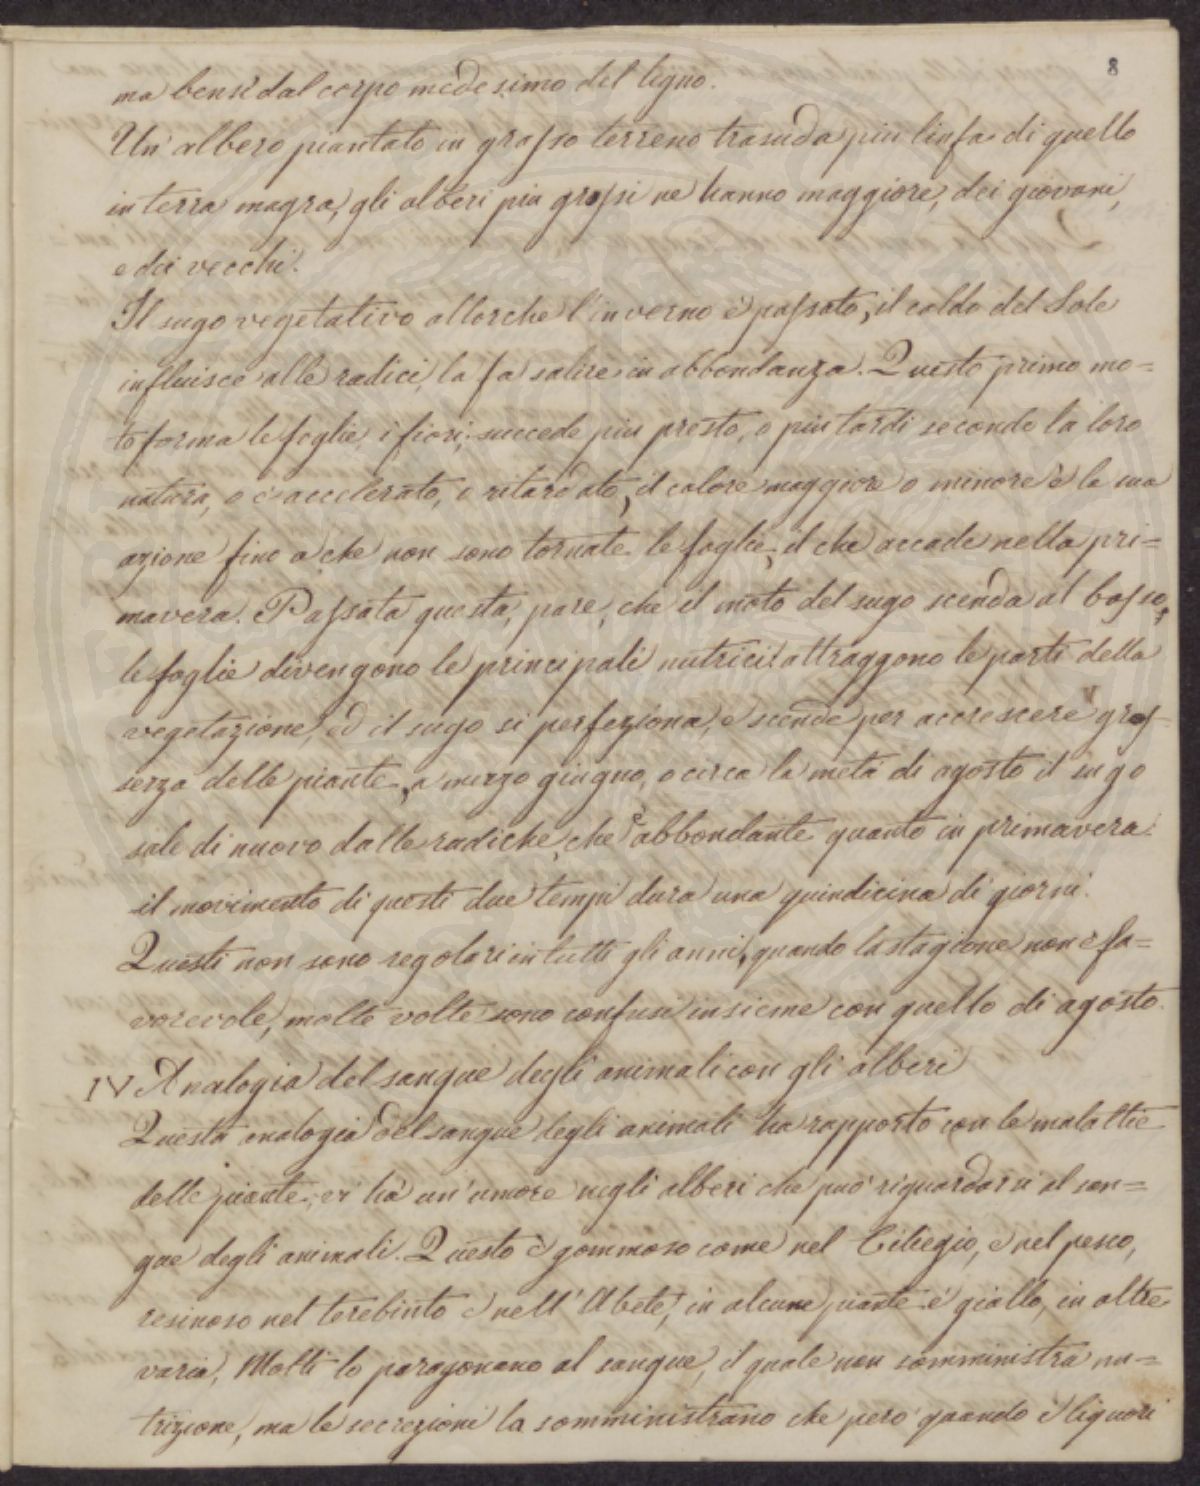 8
ma bensì dal corpo medesimo del legno.
Un albero piantato in grasso terreno trasuda piu linfa di quello
in terra magra, gli alberi piu grossi ne hanno maggiore, dei giovani,
e dei vecchi.
Il sugo vegetativo allorche l'inverno è passato, il caldo del Sole
influisce alle radici, la fa salire in abbondanza. Questo primo mo=
to forma le foglie, i fiori, succede piu presto, o piu tardi secondo la loro
natura, o è accelerato, o ritardato, il calore maggiore o minore è la sua
azione fino a che non sono tornate le foglie, il che accade nella pri=
mavera. Passata questa, pare, che il moto del sugo scenda al basso,
le foglie divengono le principali nutrici: attraggono le parti della
vegetazione, ed il sugo si perfeziona, e scende per accrescere gros-
sezza delle piante, a mezzo giugno, o circa la metà di agosto il sugo
sale di nuovo dalle radiche, che è abbondante quanto in primavera.
il movimento di questi due tempi dura una quindicina di giorni.
Questi non sono regolari in tutti gli anni, quando la stagione non è fa=
vorevole, molte volte sono confusi insieme con quello di agosto.
IV Analogia del sangue degli animali con gli alberi
Questa analogia del sangue degli animali ha rapporto con le malattie
delle piante, vi hà un'umore negli alberi che può riguardarsi al san=
gue degli animali. Questo è gommoso come nel Ciliegio, e nel pesco,
resinoso nel terebinto e nell'Abete, in alcune piante è giallo, in altre
varia, Molti lo paragonano al sangue, il quale non somministra nu=
trizione, ma le secrezioni la somministrano che però quando è liquori